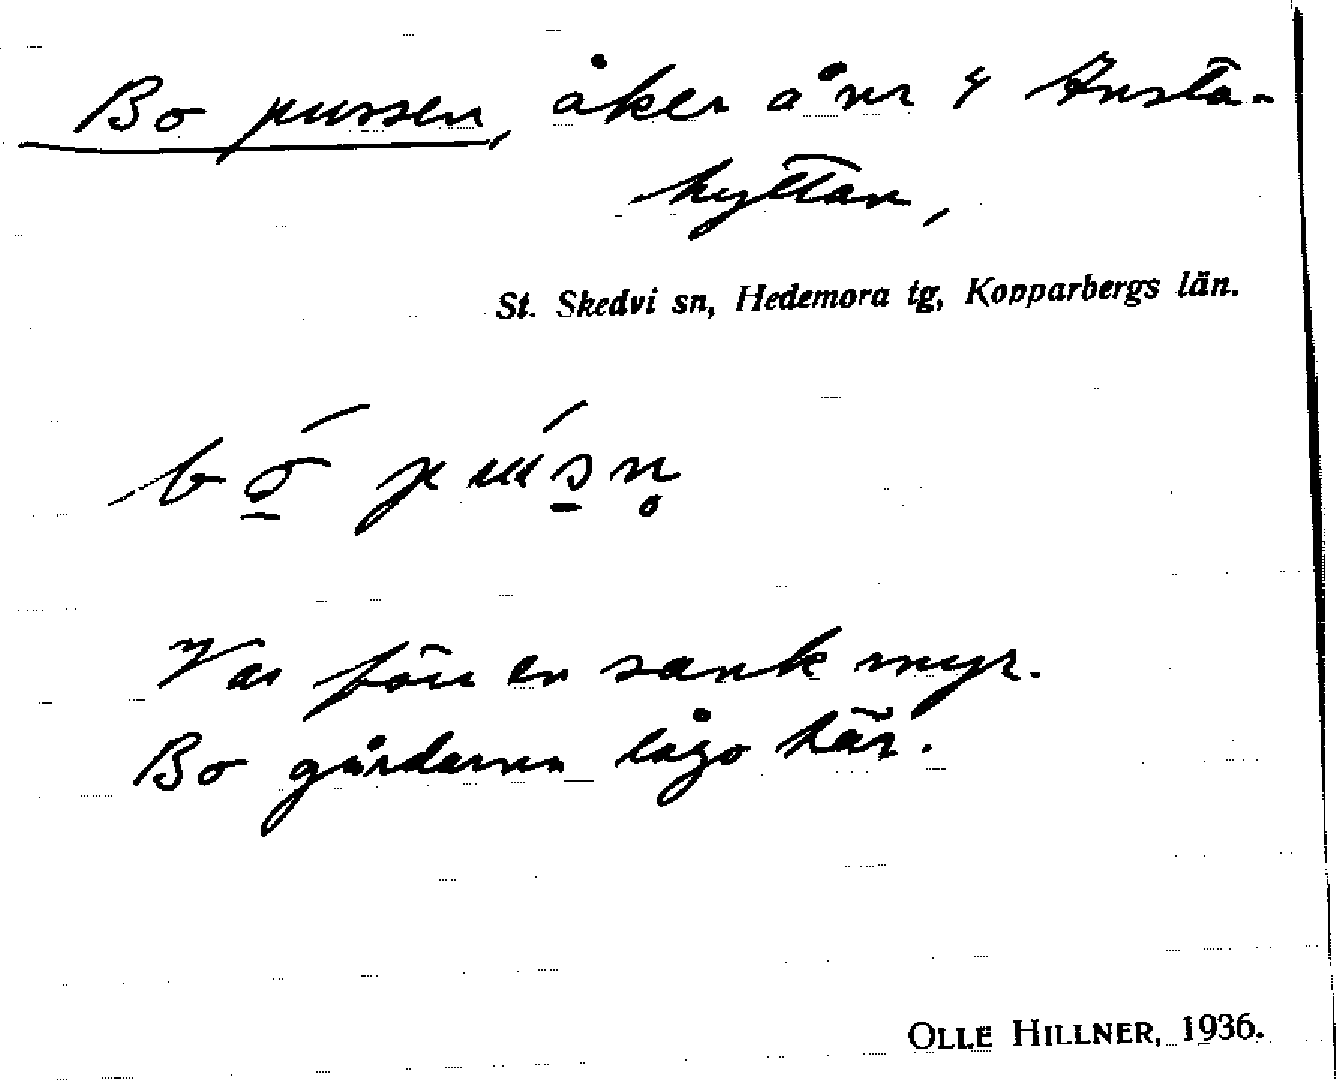 Bo pussen, åker å nr 4 Knusta-
hyttan,
St. Skedvi sn, Hedemora tg, Kopparbergs län.
Var förr en sank myr.
Bo gårdarna lågo här.
OLLE HILLNER, 1936.